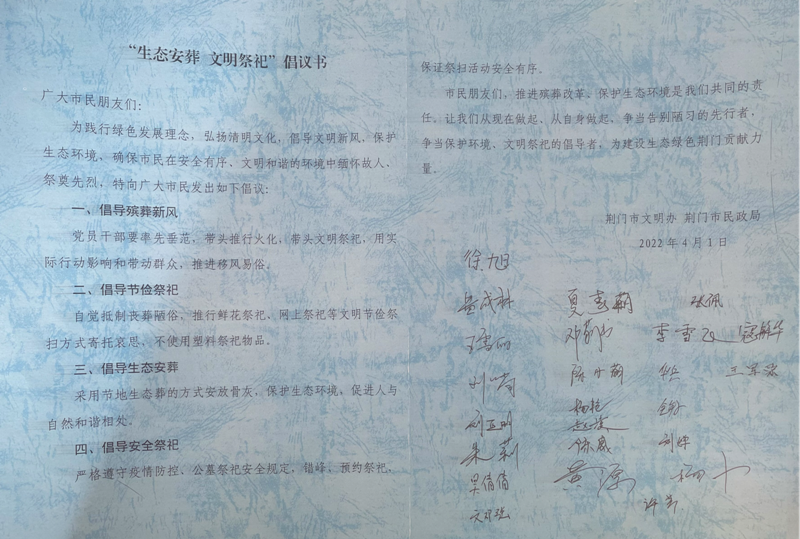 “生态安葬 文明祭祀”倡议书
广大市民朋友们：
为践行绿色发展理念，弘扬清明文化，倡导文明新风、保护
生态环境，确保市民在安全有序、文明和谐的环境中缅怀故人、
祭奠先烈，特向广大市民发出如下倡议：
一、倡导殡葬新风
党员干部要率先垂范，带头推行火化，带头文明祭祀，用实
际行动影响和带动群众，推进移风易俗。
二、倡导节俭祭祀
自觉抵制丧葬陋俗，推行鲜花祭祀、网上祭祀等文明节俭祭
扫方式寄托哀思、不使用塑料祭祀物品。
三、倡导生态安葬
采用节地生态葬的方式安放骨灰，保护生态环境，促进人与
自然和谐相处。
四、倡导安全祭祀
严格遵守疫情防控、公墓祭祀安全规定，错峰、预约祭祀，
保证祭扫活动安全有序。
市民朋友们，推进殡葬改革、保护生态环境是我们共同的责
任，让我们从现在做起、从自身做起、争当告别陋习的先行者，
争当保护环境、文明祭祀的倡导者，为建设生态绿色荆门贡献力
量。
荆门市文明办 荆门市民政局
2022 年 4 月 1 日
徐旭
朱莉
许芸